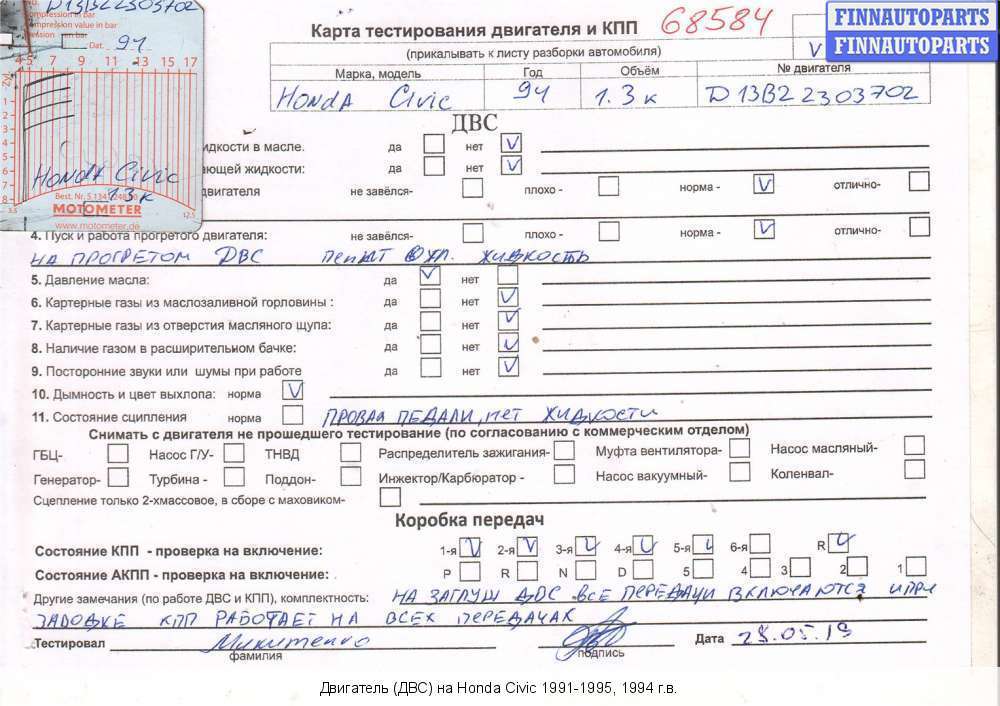 D13B2 2303702
compression in bar
compression value in bar
en bar
Dat. 94
4 5 7 8
13 15 17
1
2
3
4
5
6
7
8
Honda Civic
1.3к
Best. Nr. 5 134
MOTOMETER
www.motometer.de
3.5 12.5
FINNAUTOPARTS
FINNAUTOPARTS
Карта тестирования двигателя и КПП 68584
(прикалывать к листу разборки автомобиля) V
Марка, модель Год Объём № двигателя
Honda Civic 94 1.3к D13B2 2303702
ДВС
идкости в масле. да нет V
ающей жидкости: да нет V
двигателя не завёлся- плохо - норма - V отлично-
4. Пуск и работа прогретого двигателя: не завёлся- плохо - норма - V отлично-
НА ПРОГРЕТОМ ДВС ОХЛ. ЖИДКОСТЬ
5. Давление масла: да V нет
6. Картерные газы из маслозаливной горловины : да нет V
7. Картерные газы из отверстия масляного щупа: да нет V
8. Наличие газом в расширительном бачке: да нет V
9. Посторонние звуки или шумы при работе да нет V
10. Дымность и цвет выхлопа: норма V
11. Состояние сципления норма ПРОВАЛ ПЕДАЛИ, НЕТ ЖИДКОСТИ
Снимать с двигателя не прошедшего тестирование (по согласованию с коммерческим отделом)
ГБЦ- Насос Г/У- ТНВД Распределитель зажигания- Муфта вентилятора- Насос масляный-
Генератор- Турбина - Поддон- Инжектор/Карбюратор - Насос вакуумный- Коленвал-
Сцепление только 2-хмассовое, в сборе с маховиком-
Коробка передач
Состояние КПП - проверка на включение: 1-я V 2-я V 3-я V 4-я V 5-я V 6-я R V
Состояние АКПП - проверка на включение: P R N D 5 4 3 2 1
Другие замечания (по работе ДВС и КПП), комплектность: НА ЗАГЛУШ ДВС ВСЕ ПЕРЕДАЧИ ВКЛЮЧАЮТСЯ И ПРИ
ЗАВОДКЕ КПП РАБОТАЕТ НА ВСЕХ ПЕРЕДАЧАХ
Тестировал Микитенко Дата 28.05.19
фамилия подпись
Двигатель (ДВС) на Honda Civic 1991-1995, 1994 г.в.